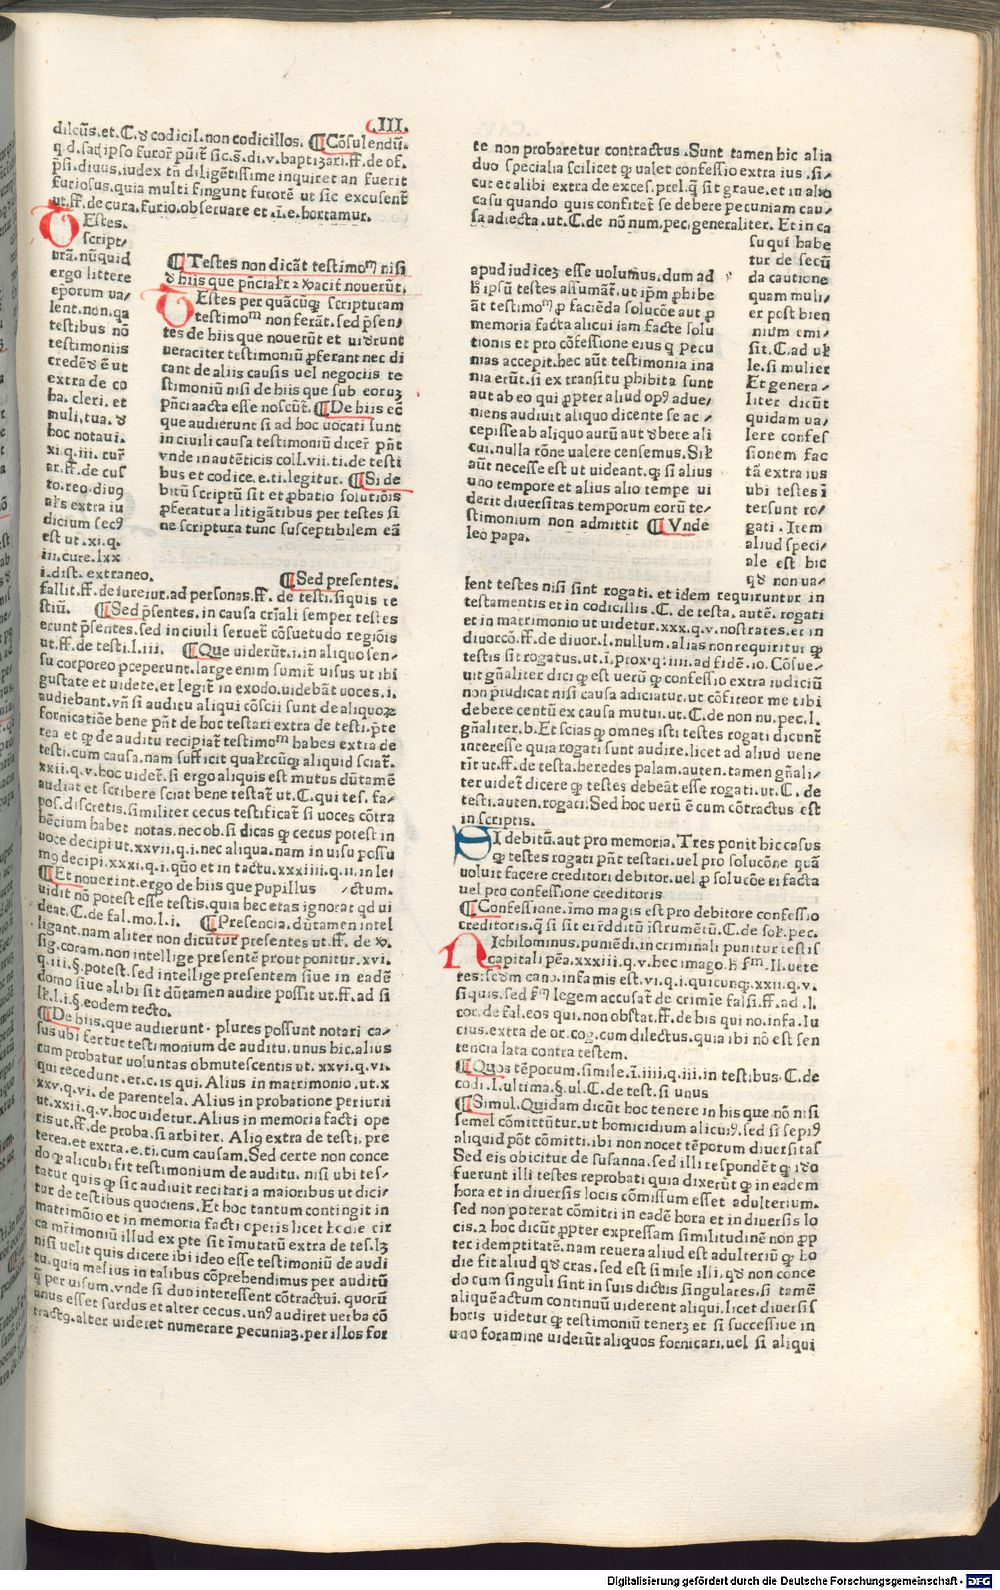 .III.
dilcūs.et.C.ꝺ codicil.non codicillos. ¶ Cōsulendū.
q.d.sat̄ ipso furor pūit̄ sic.s̄.di.v.baptizari.ff.de of.
p̄si.diuus.iudex tn̄ diligētissime inquiret an fuerit
furiosus.quia multi fingunt furorē ut sic excusent̄
ut.ff.de cura.furio.obseruare et .i.e.hortamur.
TEstes.
script/
urā.nūquid
ergo littere
eporum ua/
lent.non.qa
testibus nō
testimoniis
credēꝺ ē ut
extra de co
ha.cleri.et
muli.tua.ꝺ
hoc notaui.
xi.q.iii.cur̄
ar.ff.de cus
to.reo.diug
al's extra iu
dicium sec9
est ut.xi.q.
iii.cure.lxx
i.dist.extraneo.
¶ Testes non dicāt testimoᵐ nisi
ꝺ hiis que pn̄cialr̄ 2 xꝺacit̄ nouerūt.
TEstes per quācūqꝫ scripturam
testimoᵐ non ferāt.sed p̄sen/
tes de hiis que nouerūt et uiderunt
ueraciter testimoniū ꝓferant nec di
cant de aliis causis uel negociis te
stimoniū nisi de hiis que sub eorum
pn̄cia acta esse noscūt̄. ¶ De hiis em̄
que audierunt si ad hoc uocati sunt
in ciuili causa testimoniū dicer̄ pn̄t
vnde in autēticis coll.vii.ti.de testi
bus et codice.e.ti.legitur. ¶ Si de
bitū scriptū sit et ꝓbatio solutiōis
ꝓferatur a litigātibus per testes si
ne scriptura tunc susceptibilem eā
¶ Sed presentes.
fallit.ff.de iureiur.ad personas.ff.de testi.siquis te
stiū. ¶ Sed p̄sentes.in causa crīali semper testes
erunt p̄sentes.sed in ciuili seruet̄ cōsuetudo regiōis
ut.ff.de testi.l.iii. ¶ Que uiderūt.i.in aliquo sen/
su corporeo ꝓceperunt.large enim sumit̄ uisus ut ibi
gustate et uidete.et legit̄ in exodo.uidebāt uoces.i.
audiebant.vn̄ si auditu aliqui cōscii sunt de aliquoꝝ
fornicatiōe bene pn̄t de hoc testari extra de testi.p̄te
rea et qꝫ de auditu recipiat̄ testimoᵐ habes extra de
testi.cum causa.nam sufficit qualr̄cūqꝫ aliquid sciat̄.
xxii.q.v.hoc uidet̄.si ergo aliquis est mutus dūtamē
audiat et scribere sciat bene testat̄ ut.C.qui tes.fa/
pos.discretis.similiter cecus testificat̄ si uoces cōtra
hēcium habet notas.nec ob.si dicas qꝫ cecus potest in
uoce decipi ut.xxvii.q.i.nec aliqua.nam in uisu possu
m9 decipi.xxxi.q.i.quō et in tactu.xxxiiii.q.ii.in lei
¶ Et nouerint.ergo de hiis que pupillus /ctum.
uidit nō potest esse testis.quia hec etas ignorat qd ui
deat.C.de fal.mo.l.i. ¶ Presencia.dūtamen intel
ligant.nam aliter non dicūtur presentes ut.ff.de xꝺ.
sig.coram.non intellige presentē prout ponitur.xvi.
q.iii.§.potest.sed intellige presentem siue in eadē
domo siue alibi sit dūtamen audire possit ut.ff.ad si
lr̄.l.i.§.eodem tecto.
¶ De hiis.que audierunt. plures possunt notari ca/
sus ubi fertur testimonium de auditu.unus hic.alius
cum probatur uoluntas obmutescentis ut.xxvi.q.vi.
qui recedunt.et.c.is qui.Alius in matrimonio.ut.x
xxv.q.vi.de parentela.Alius in probatione periurii
ut.xxii.q.v.hoc uidetur.Alius in memoria facti ope
ris ut.ff.de proba.si arbiter. Ali9 extra de testi.pre
terea.et extra.e.ti.cum causam.Sed certe non conce
do qꝫ alicubi fit testimonium de auditu.nisi ubi tes/
tatur quis qꝫ sic audiuit recitari a maioribus ut dici/
tur de testibus quociens.Et hoc tantum contingit in
matrimōio et in memoria facti operis licet hodie cir
ca mr̄imoniū illud ex pte sit īmutatū extra de tes.lꝫ
nisi uelit quis dicere ibi ideo esse testimoniū de audi
tu.quia melius in talibus cōprehendimus per auditū
q̄ per uisum.vnde si duo interessent cōtractui.quorū
unus esset surdus et alter cecus.un9 audiret uerba cō
tract9.alter uideret numerare pecuniaꝫ.per illos for
te non probaretur contractus .Sunt tamen hic alia
duo specialia scilicet qꝫ ualet confessio extra ius .si/
cut et alibi extra de exces.prel.q̄ sit graue.et in alio
casu quando quis confitet̄ se debere pecuniam cau/
sa adiecta.ut.C.de nō num.pec.generaliter. Et in ca
su qui habe
tur de secū
da cautione
quam muli/
er post bien
nium emi/
sit.C.ad uł
le.si mulier
Et genera/
liter dicūt
quidam ua/
lere confes
sionem fac
tā extra ius
ubi testes ī
tersunt ro/
gati .Item
aliud speci/
ale est hic
qꝺ non ua/
apud iudiceꝫ esse uolumus.dum ad
h̄ ipsū testes assumāt̄.ut ip̄m ꝓhibe
āt testimoᵐ ꝓ faciēda solucōe aut ꝓ
memoria facta alicui iam facte solu
tionis et pro cōfessione eius q ꝓ pecu
nias accepit.hec aūt testimonia ina
nia erūt.si ex transitu ꝓhibita sunt
aut ab eo qui ꝓpter aliud op9 adue/
niens audiuit aliquo dicente se ac/
cepisse ab aliquo aurū aut ꝺbere ali
cui.nulla rōne ualere censemus.Sił
aūt necesse est ut uideant.qꝫ si alius
uno tempore et alius alio tempe ui
derit diuersitas temporum eorū te/
stimonium non admittit ¶ Vnde
leo papa.
lent testes nisi sint rogati.et idem requiruntur in
testamentis et in codicillis .C.de testa.autē.rogati
et in matrimonio ut uidetur.xxx.q.v.nostrates.et in
diuorcō.ff.de diuor.l.nullum.alias non requiritur qꝫ
testis sit rogatus.ut.ī.prox.q.iiii.ad fidē.10.Cōsue/
uit gn̄aliter dici qꝫ est uerū qꝫ confessio extra iudiciū
non p̄iudicat nisi causa adiciatur.ut cōfiteor me tibi
debere centū ex causa mutui.ut.C.de non nu.pec.l.
gn̄aliter.b.Et scias qꝫ omnes isti testes rogati dicunt̄
interesse quia rogati sunt audire.licet ad aliud uene
rīt ut.ff.de testa.heredes palam.auten.tamen gn̄ali/
ter uidet̄ dicere qꝫ testes debeāt esse rogati.ut.C.de
testi.auten.rogati.Sed hoc uerū ē cum cōtractus est
in scriptis.
SI debitū.aut pro memoria.Tres ponit hic casus
qꝫ testes rogati pn̄t testari.uel pro solucōne quā
uoluit facere creditori debitor.uel ꝓ solucōe ei facta
uel pro confessione creditoris
¶ Confessione.īmo magis est pro debitore confessio
creditoris.q̄ si sit ei rꝺditū īstrumētū.C.de soł.pec.
NIchilominus.puniēdi.in criminali punitur testis
capitali pēa.xxxiii.q.v.hec imago.h̄ fᵐ.ll.uete
res:scd̄m cano.infamis est.vi.q.i.quicunqꝫ.xxii.q.v.
siquis.sed fᵐ legem accusat̄ de crimīe falsi.ff.ad .l.
cor.de fal.eos qui.non obstat.ff.de his qui no.infa.lu
cius.extra de or.cog.cum dilectus.quia ibi nō est sen
tencia lata contra testem.
¶ Quos tēporum.simile.ī.iiii.q.iii.in testibus.C.de
codi.l.ultima.§.ul.C.de test.si unus
¶ Simul.Quidam dicūt hoc tenere in his que nō nisi
semel cōmittūtur.ut homicidium alicui9.sed si sepi9
aliquid pōt cōmitti.ibi non nocet tēporum diuersitas
Sed eis obicitur de susanna.sed illi respondēt qꝫ iꝺo
fuerunt illi testes reprobati quia dixerūt qꝫ in eadem
hora et in diuersis locis cōmissum esset adulterium.
sed non poterat cōmitti in eadē hora et in diuersis lo
cis.2 hoc dicūt ꝓpter expressam similitudinē non ꝓp
ter idemptitatē.nam reuera aliud est adulteriū qꝫ ho
die fit aliud qꝺ cras.sed est simile illi.qꝺ non conce
do cum singuli sint in suis dictis singulares.si tamē
aliquē actum continuū uiderent aliqui.licet diuersis
horis uidetur qꝫ testimoniū tenerꝫ et si successiue in
uno foramine uiderūt aliquos fornicari.uel si aliqui
Digitalisierung gefördert durch die Deutsche Forschungsgemeinschaft - DFG